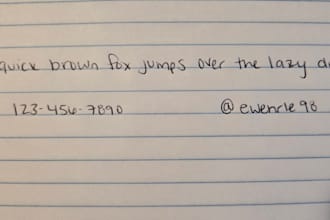 quick brown fox jumps over the lazy d
123-456-7890 @ewencle98